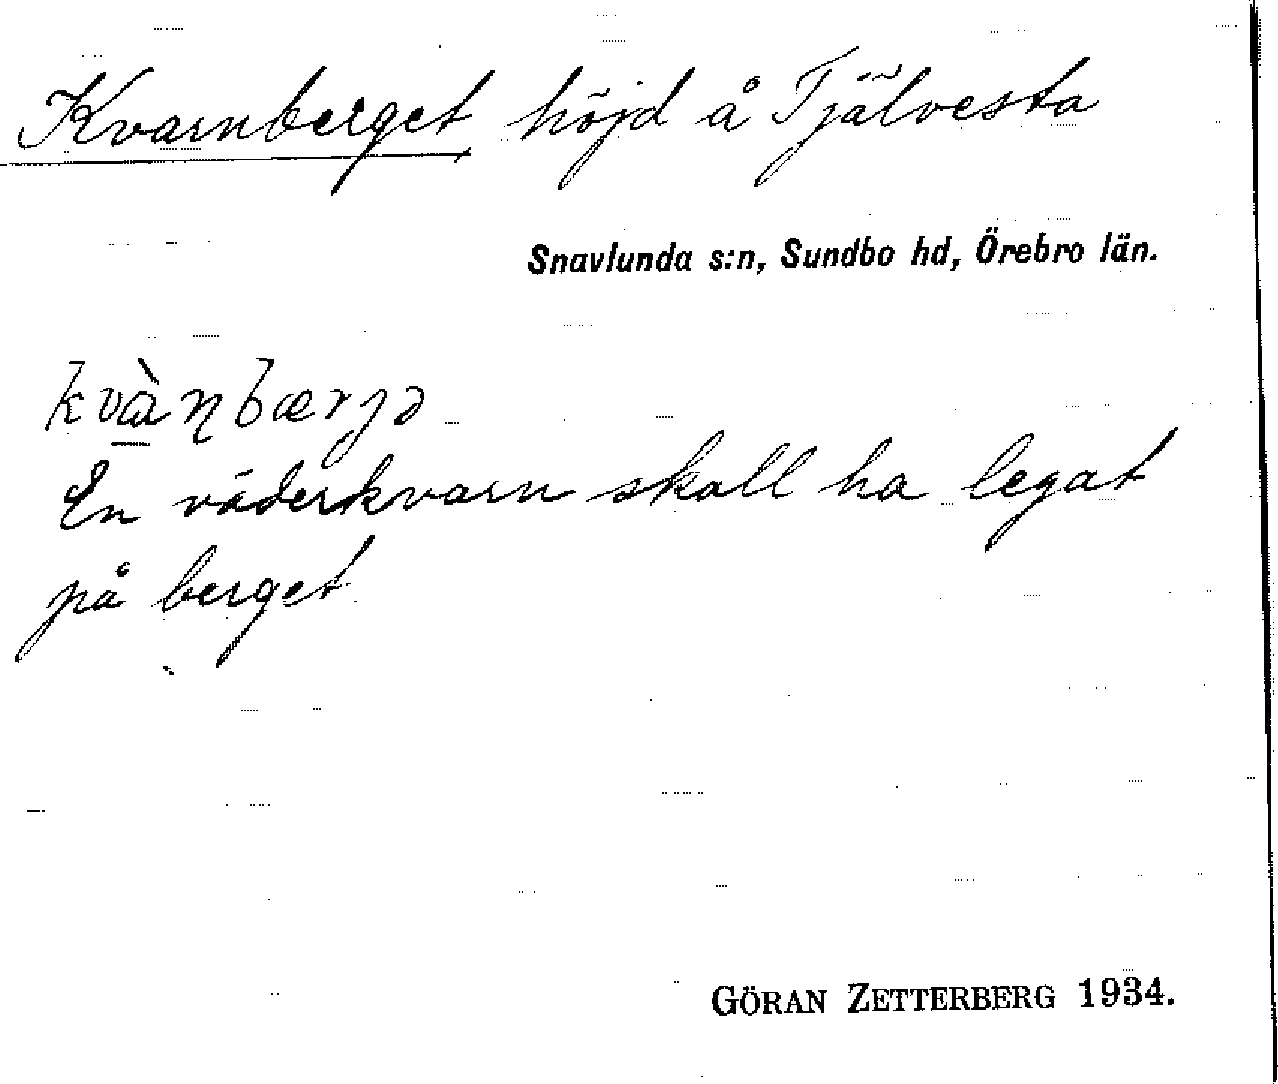 Kvarnberget höjd å Tjälvesta
Snavlunda s:n, Sundbo hd, Örebro län.
kvàɳbærjə
En väderkvarn skall ha legat
på berget
GÖRAN ZETTERBERG 1934.